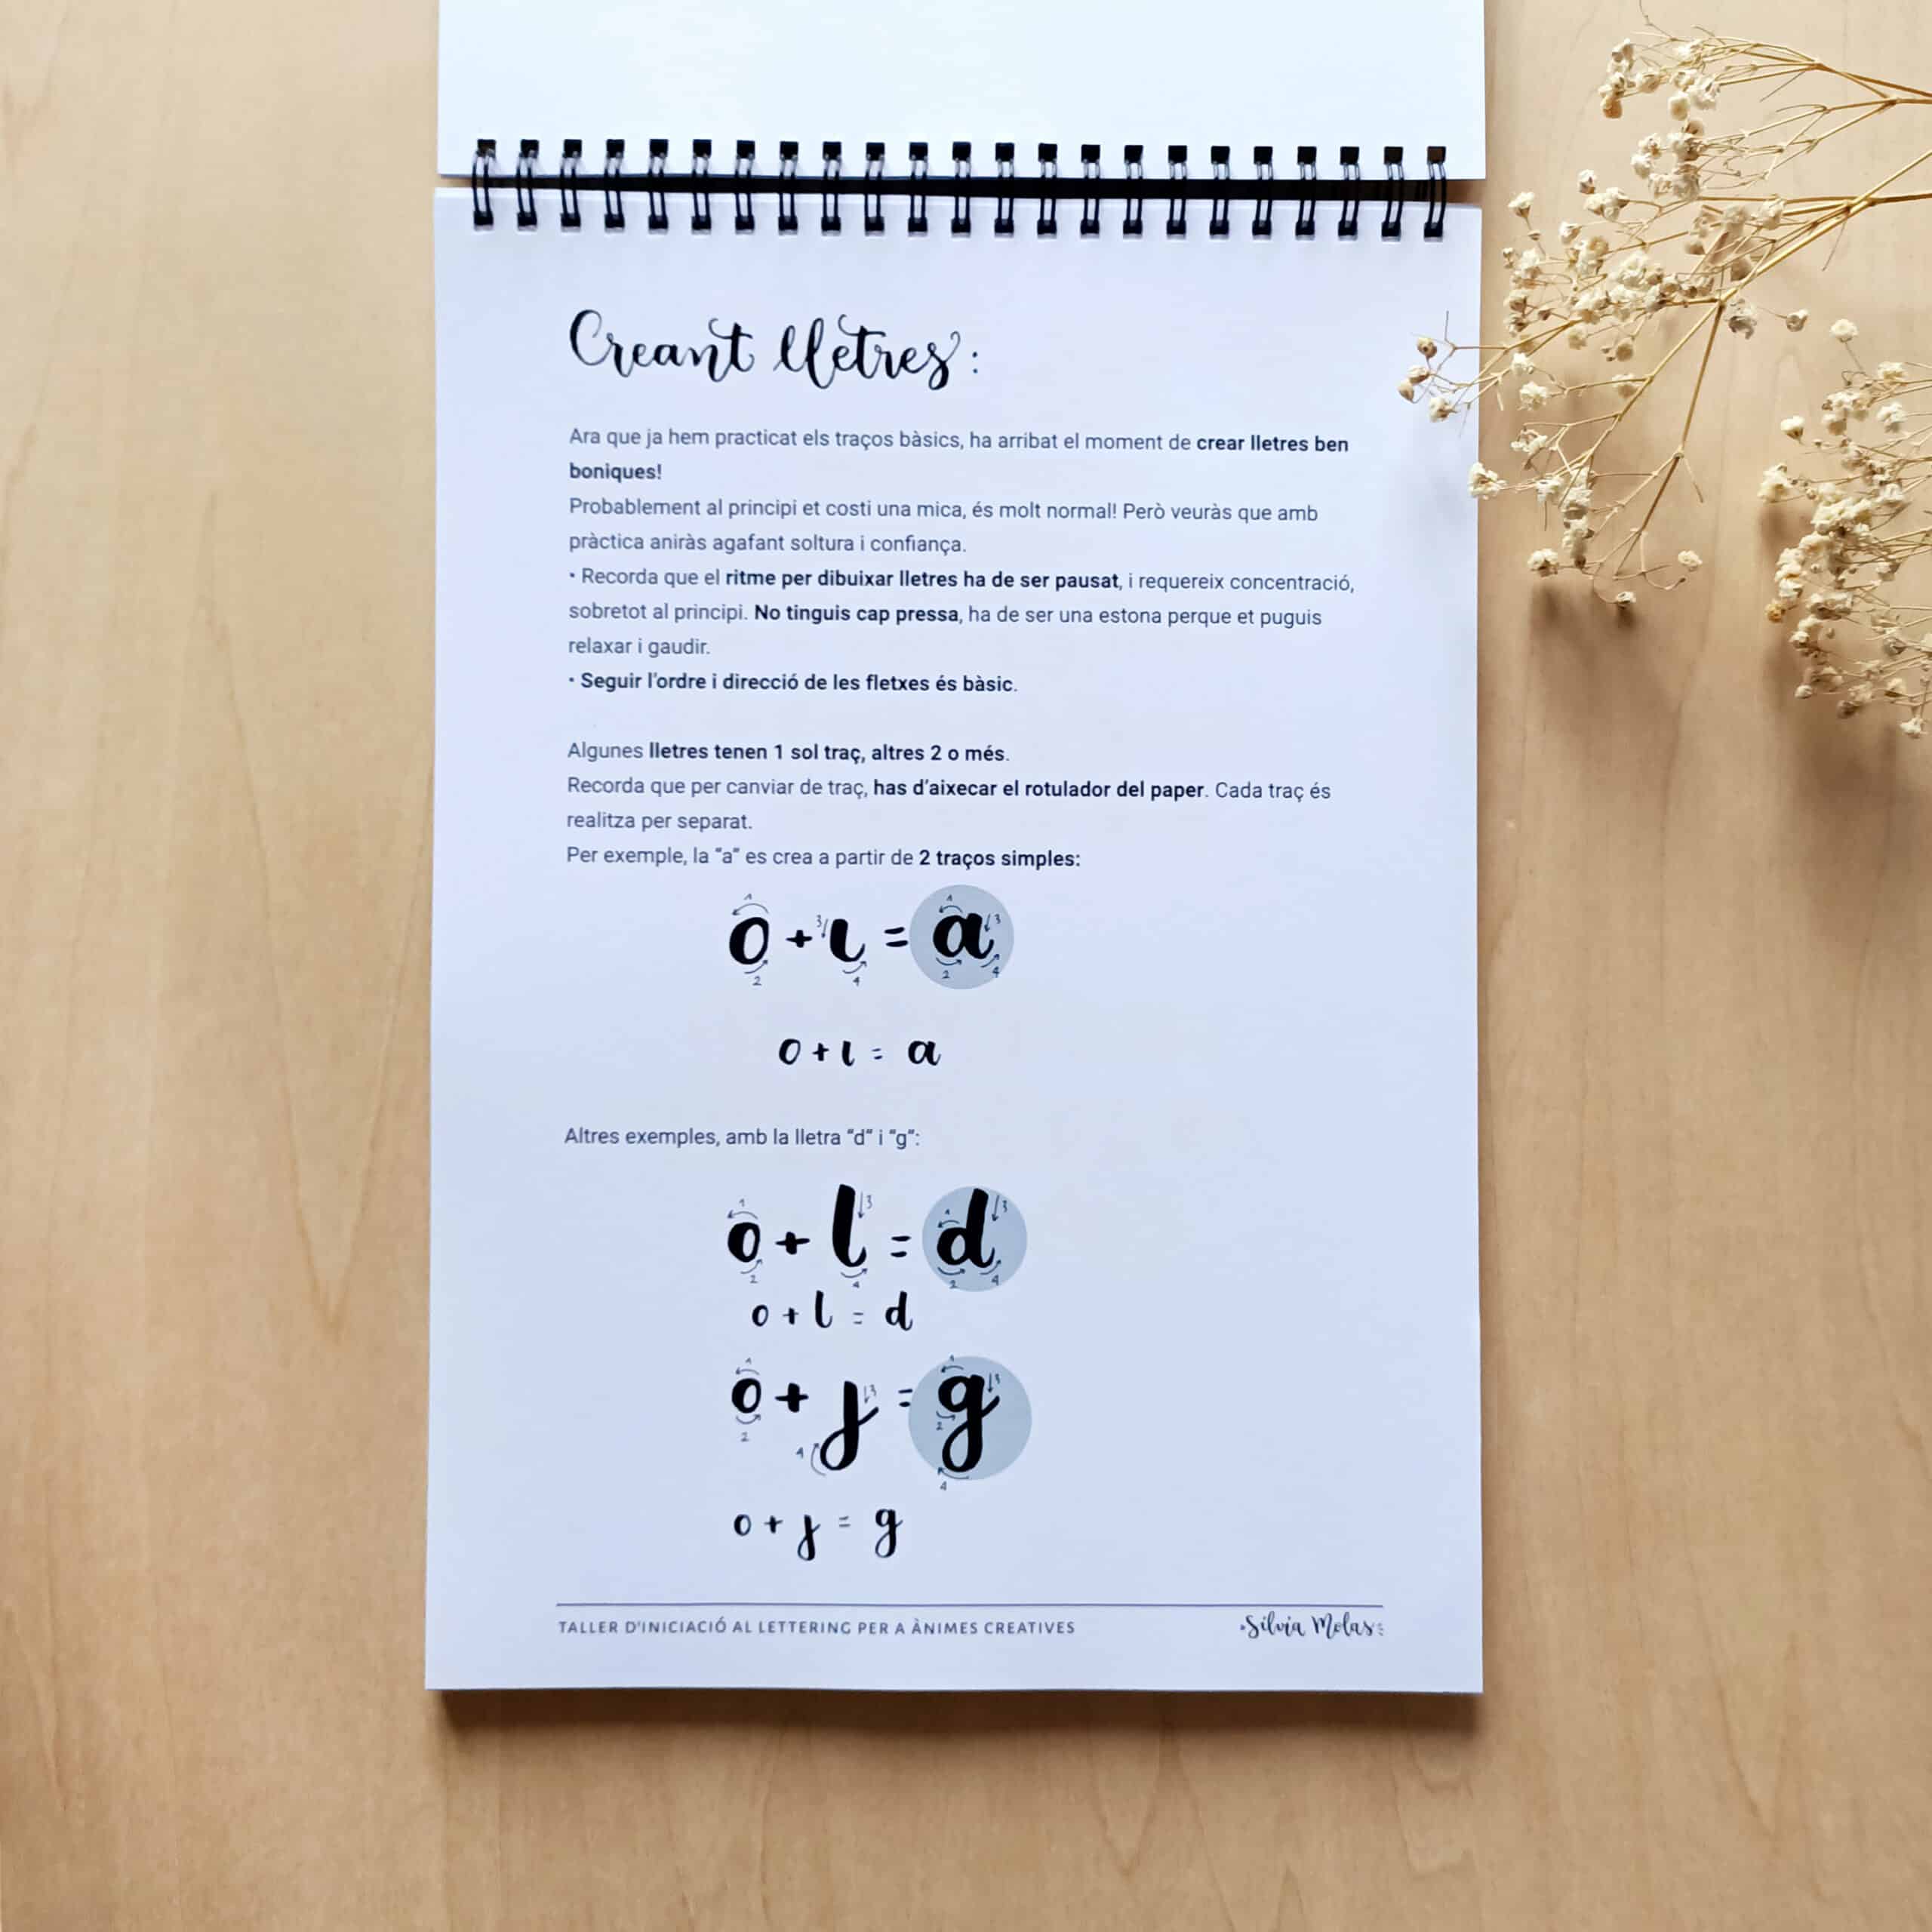 Creant lletres:
Ara que ja hem practicat els traços bàsics, ha arribat el moment de crear lletres ben
boniques!
Probablement al principi et costi una mica, és molt normal! Però veuràs que amb
pràctica aniràs agafant soltura i confiança.
• Recorda que el ritme per dibuixar lletres ha de ser pausat, i requereix concentració,
sobretot al principi. No tinguis cap pressa, ha de ser una estona perque et puguis
relaxar i gaudir.
• Seguir l'ordre i direcció de les fletxes és bàsic.
Algunes lletres tenen 1 sol traç, altres 2 o més.
Recorda que per canviar de traç, has d'aixecar el rotulador del paper. Cada traç és
realitza per separat.
Per exemple, la “a” es crea a partir de 2 traços simples:
1 3 1 3
o + ι = a
2 4 2 4
o + ι = a
Altres exemples, amb la lletra “d” i “g”:
1 3 1 3
o + l = d
2 4 2 4
o + l = d
1 3 1 3
o + j = g
2 4 2 4
o + j = g
TALLER D'INICIACIÓ AL LETTERING PER A ÀNIMES CREATIVES
Silvia Molas